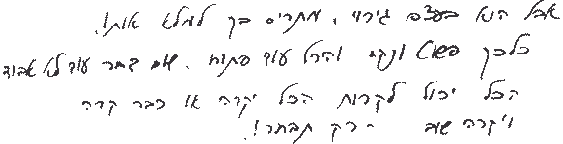 אבל הוא בעצם גירוי, מתריס בך למלא אותו!.
כלבן פשוט ונקי והכל עוד פתוח. שום דבר עוד לא אבוד
הכל יכול לקרות הכל יקרה או כבר קרה
ויקרה שוב הרק תבחר!.